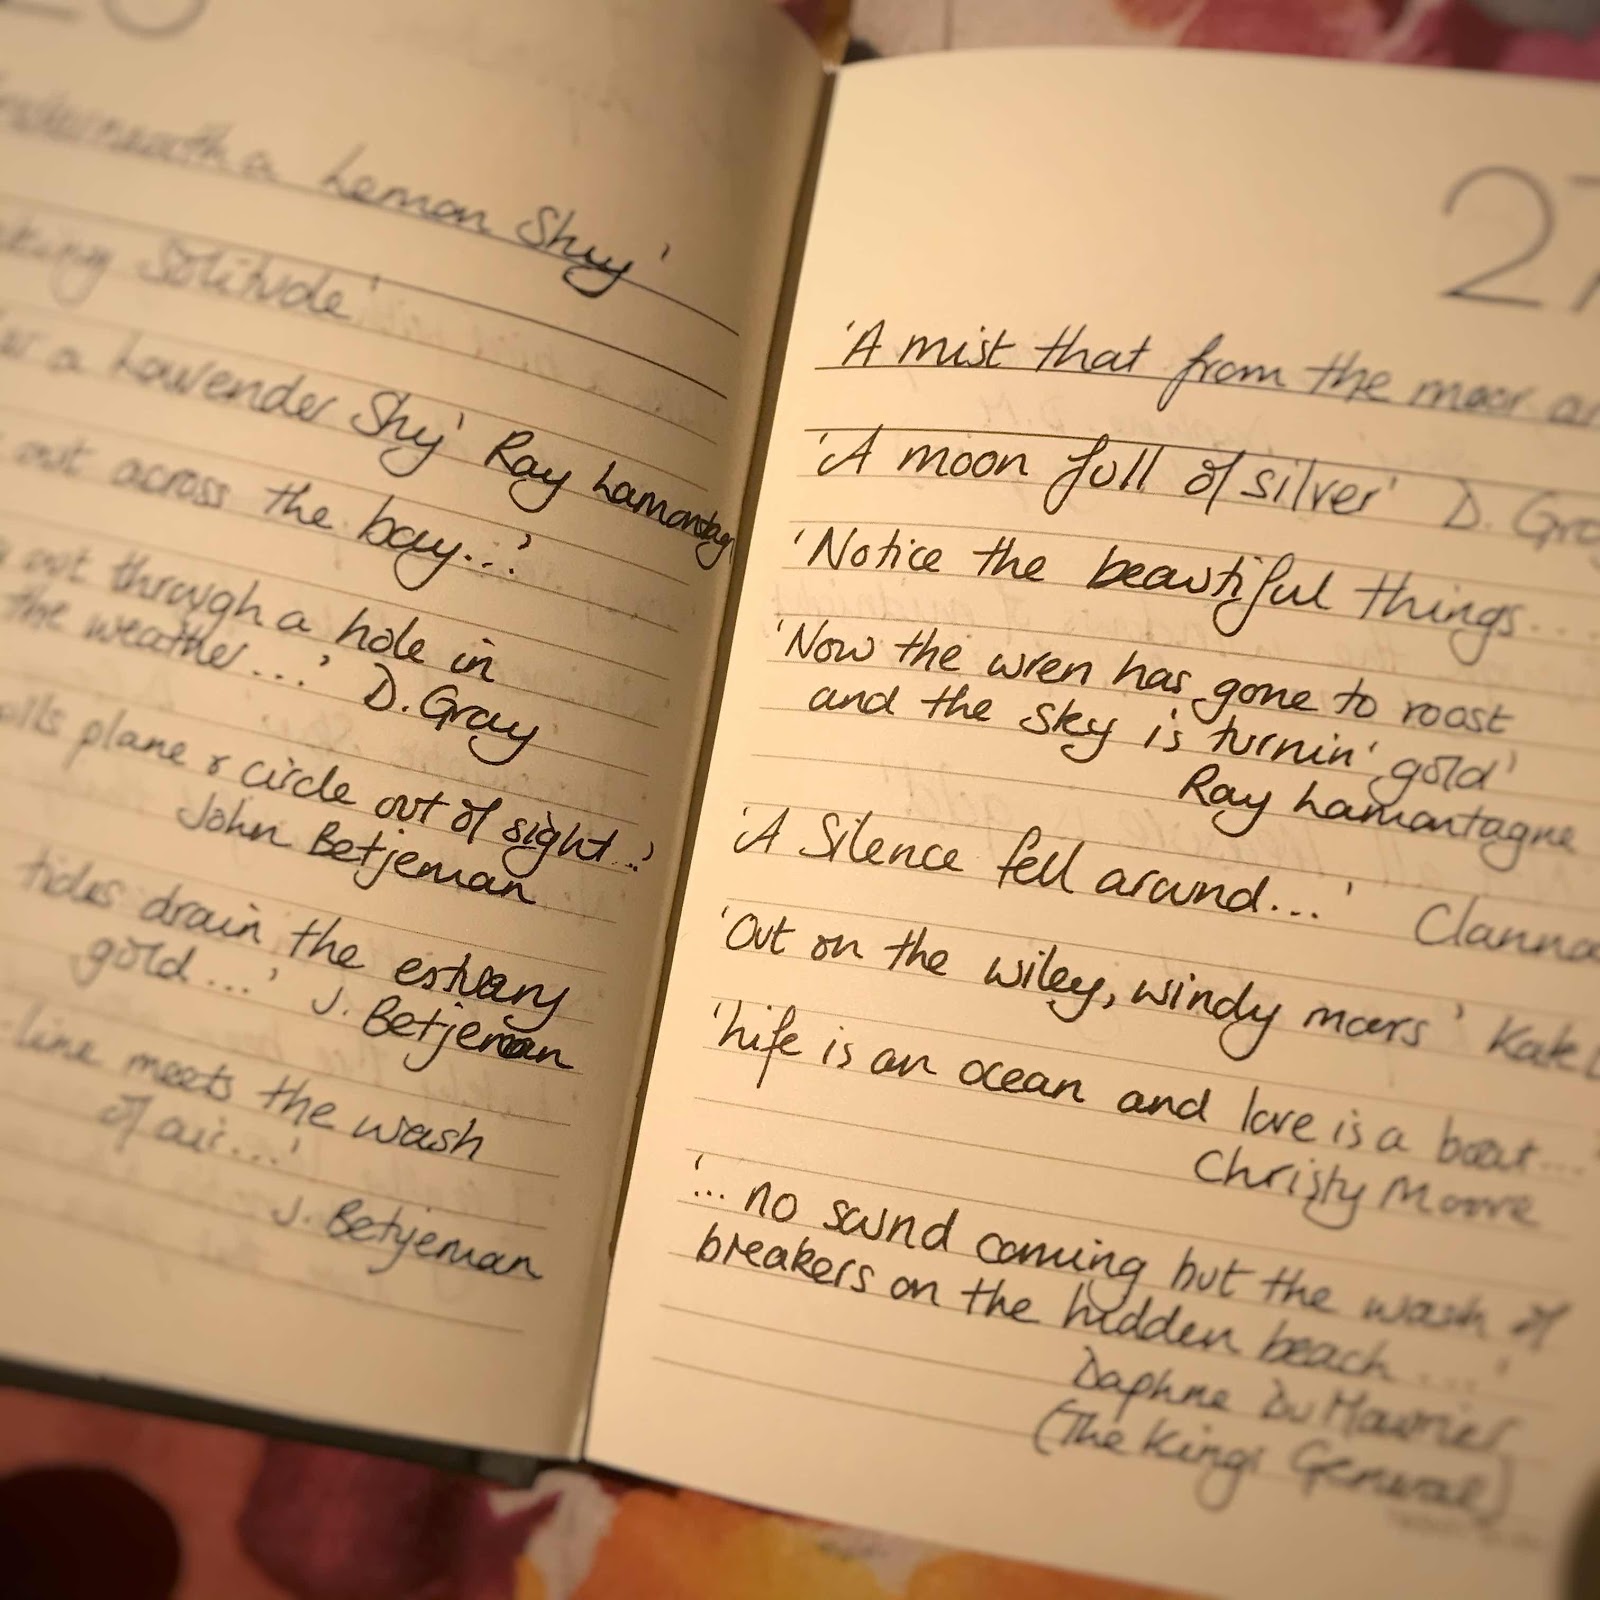 underneath a Lemon Sky'
Solitude'
a Lavender Sky' Ray Lamontag
out across the bay...'
out through a hole in
the weather...' D. Gray
plane & circle out of sight...'
John Betjeman
tides drain the estuary
gold...' J. Betjeman
-line meets the wash
of air...'
J. Betjeman
27
'A mist that from the moor
'A moon full of silver' D. Gray
'Notice the beautiful things...
'Now the wren has gone to roost
and the sky is turnin' gold'
Ray Lamontagne
'A Silence fell around...' Clanna
'Out on the wiley, windy moors' Kate
'Life is an ocean and love is a boat...'
Christy Moore
'... no sound coming but the wash of
breakers on the hidden beach....'
Daphne Du Maurier
(The Kings General)